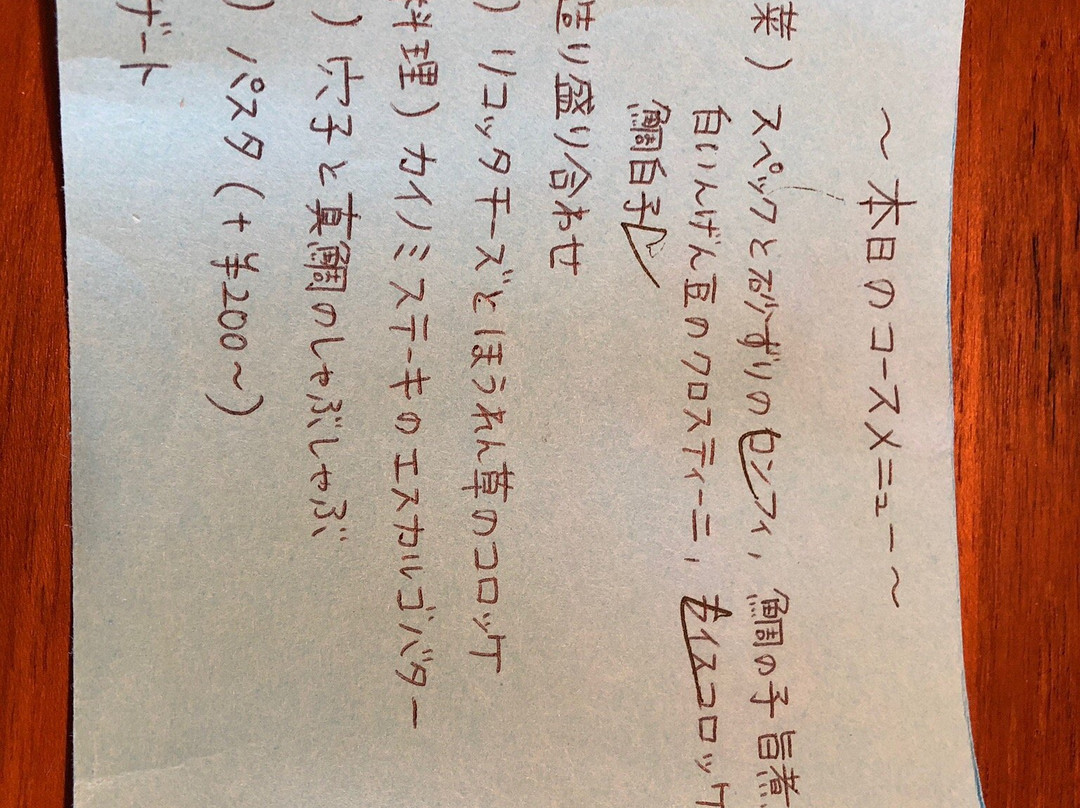 ～本日のコースメニュー～
菜) スペックと砂ずりのコンフィ, 鯛の子旨煮
白いんげん豆のクロスティーニ, コロッケ
鯛白子
造り盛り合わせ
) リコッタチーズとほうれん草のコロッケ
料理) カイノミステーキのエスカルゴバター
) 穴子と真鯛のしゃぶしゃぶ
) パスタ (+¥200～)
ザート